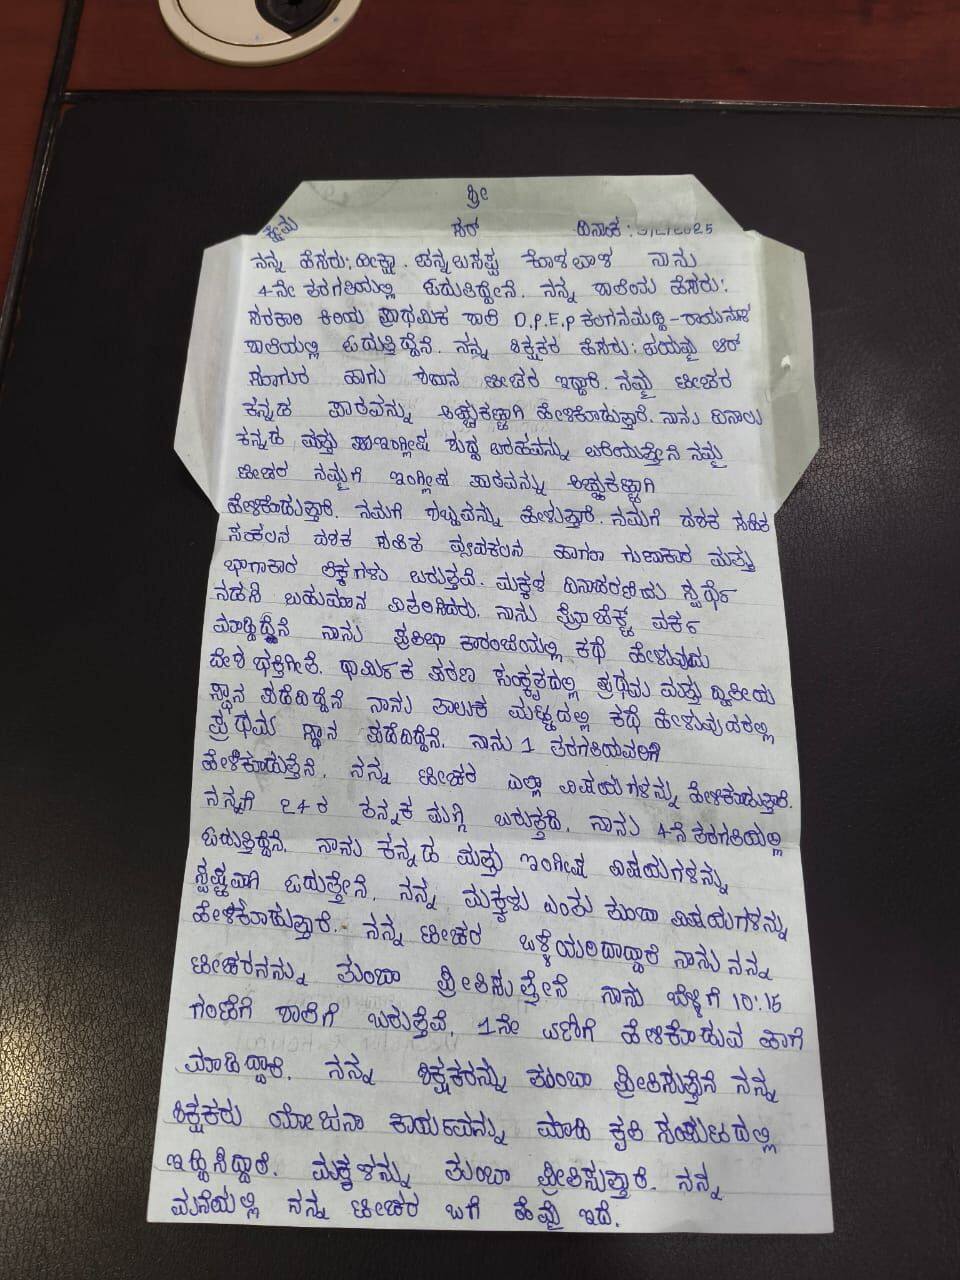 ಶ್ರೀ
ಕ್ಷೇಮ ಸರ್ ದಿನಾಂಕ: 5/2/2025
ನನ್ನ ಹೆಸರು: ದೀಕ್ಷಾ. ಚನ್ನಬಸಪ್ಪ ಕೊಳಲಾಳ ನಾನು
4ನೇ ತರಗತಿಯಲ್ಲಿ ಓದುತಿದ್ದೇನೆ. ನನ್ನ ಶಾಲೆಯ ಹೆಸರು:
ಸರಕಾರಿ ಕಿರಿಯ ಪ್ರಾಥಮಿಕ ಶಾಲೆ D.P.E.P
ಶಾಲೆಯಲ್ಲಿ ಓದುತ್ತಿದ್ದೆನೆ. ನನ್ನ ಶಿಕ್ಷಕರ ಹೆಸರು: ಆರ್
ಹಾಗು ಟೀಚರ ಇದ್ದಾರೆ. ನಮ್ಮ ಟೀಚರ
ಕನ್ನಡ ಪಾಠವನ್ನು ಅಚ್ಚುಕಟ್ಟಾಗಿ ಹೇಳಿಕೊಡುತ್ತಾರೆ. ನಾನು ದಿನಾಲು
ಕನ್ನಡ ಮತ್ತು ಇಂಗ್ಲೀಷ ಶುದ್ಧ ಬರಹವನ್ನು ಬರೆಯುತ್ತೇನೆ ನಮ್ಮ
ಟೀಚರ ನಮ್ಮಗೆ ಇಂಗ್ಲೀಷ ಪಾಠವನ್ನು ಅಚ್ಚುಕಟ್ಟಾಗಿ
ಹೇಳಿಕೊಡುತ್ತಾರೆ. ನಮಗೆ ಹೇಳುತ್ತಾರೆ. ನಮಗೆ ದಶಕ ಸಹಿತ
ಸಂಕಲನ ದಶಕ ಸಹಿತ ವ್ಯವಕಲನ ಹಾಗೂ ಗುಣಾಕಾರ ಮತ್ತು
ಭಾಗಾಕಾರ ಲೆಕ್ಕಗಳು ಬರುತ್ತವೆ. ಮಕ್ಕಳ ದಿನಾಚರಣೆಯ ಸ್ಪರ್ಧೆ
ನಡಸಿ ಬಹುಮಾನ ವಿತರಿಸಿದರು. ನಾನು ಪ್ರೊಜೆಕ್ಟ್ ವರ್ಕ
ಮಾಡಿದ್ದೆನೆ ನಾನು ಪ್ರತಿಭಾ ಕಾರಂಜಿಯಲ್ಲಿ ಕಥೆ ಹೇಳುವುದು
ದೇಶ ಭಕ್ತಿಗೀತೆ. ಧಾರ್ಮಿಕ ಪಠಣ ಸಂಸ್ಕೃತದಲ್ಲಿ ಪ್ರಥಮ ಮತ್ತು ದ್ವಿತೀಯ
ಸ್ಥಾನ ಪಡೆದಿದ್ದೆನೆ ನಾನು ತಾಲುಕ ಮಟ್ಟದಲ್ಲಿ ಕಥೆ ಹೇಳುವುದರಲ್ಲಿ
ಪ್ರಥಮ ಸ್ಥಾನ ಪಡೆದಿದ್ದೆನೆ. ನಾನು 1 ತರಗತಿಯವರಿಗೆ
ಹೇಳಿಕೊಡುತ್ತೆನೆ. ನನ್ನ ಟೀಚರ ಎಲ್ಲಾ ವಿಷಯಗಳನ್ನು ಹೇಳಿಕೊಡುತ್ತಾರೆ.
ನನ್ನಗೆ 24ರ ತನ್ನಕ ಮಗ್ಗಿ ಬರುತ್ತದೆ. ನಾನು 4ನೆ ತರಗತಿಯಲ್ಲಿ
ಓದುತ್ತಿದ್ದೆನೆ. ನಾನು ಕನ್ನಡ ಮತ್ತು ಇಂಗೀಷ ವಿಷಯಗಳನ್ನು
ಸ್ಪಷ್ಟವಾಗಿ ಓದುತ್ತೇನೆ. ನನ್ನ ಮಕ್ಕಳು ಎಂತು ತುಂಬಾ ವಿಷಯಗಳನ್ನು
ಹೇಳಿಕೊಡುತ್ತಾರೆ. ನನ್ನ ಟೀಚರ ಒಳ್ಳೆಯರಿದ್ದಾರೆ ನಾನು ನನ್ನ
ಟೀಚರನನ್ನು ತುಂಬಾ ಪ್ರೀತಿಸುತ್ತೇನೆ ನಾನು ಬೆಳ್ಳಿಗೆ 10:15
ಗಂಟೆಗೆ ಶಾಲೆಗೆ ಬರುತ್ತೆವೆ. 1ನೇ ಹೇಳಿಕೊಡುವ ಹಾಗೆ
ಮಾಡಿದ್ದಾರೆ. ನನ್ನ ಶಿಕ್ಷಕರನ್ನು ತುಂಬಾ ಪ್ರೀತಿಸುತ್ತೆನೆ ನನ್ನ
ಶಿಕ್ಷಕರು ಯೋಜನಾ ಕಾರ್ಯವನ್ನು ಮಾಡಿ ಕೃತಿ ಸಂಪುಟದಲ್ಲಿ
ಇಟ್ಟಿಸಿದ್ದಾರೆ. ಮಕ್ಕಳನ್ನು ತುಂಬಾ ಪ್ರೀತಿಸುತ್ತಾರೆ. ನನ್ನ
ಮನೆಯಲ್ಲಿ ನನ್ನ ಟೀಚರ ಬಗೆ ಹೆಮ್ಮೆ ಇದೆ.